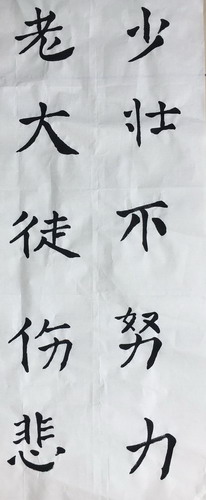 少壮不努力
老大徒伤悲